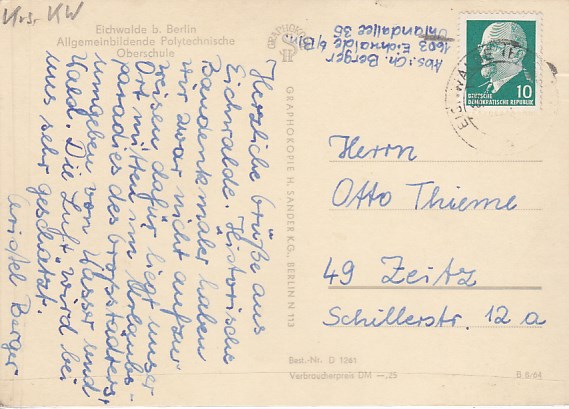 Krs. KW
Eichwalde b. Berlin
Allgemeinbildende Polytechnische
Oberschule
Herzliche Grüße aus
Eichwalde. Historische
Baudenkmäler haben
wir zwar nicht aufzu-
weisen dafür liegt unser
Ort mitten im Urlaubs-
paradies des Großstädters,
umgeben von Wasser und
Wald. Die Luft wird bei
uns sehr geschätzt.
Christel Berger
GRAPHOKOPIE H. SANDER KG., BERLIN N 113
GRAPHOKOPIE
Abs: Ch. Berger
1603 Eichwalde b/Bln
Uhlandallee 36
10
DEUTSCHE
DEMOKRATISCHE REPUBLIK
Herrn
Otto Thieme
49 Zeitz
Schillerstr. 12 a
Best.-Nr. D 1261
Verbraucherpreis DM —,25
B 6/64